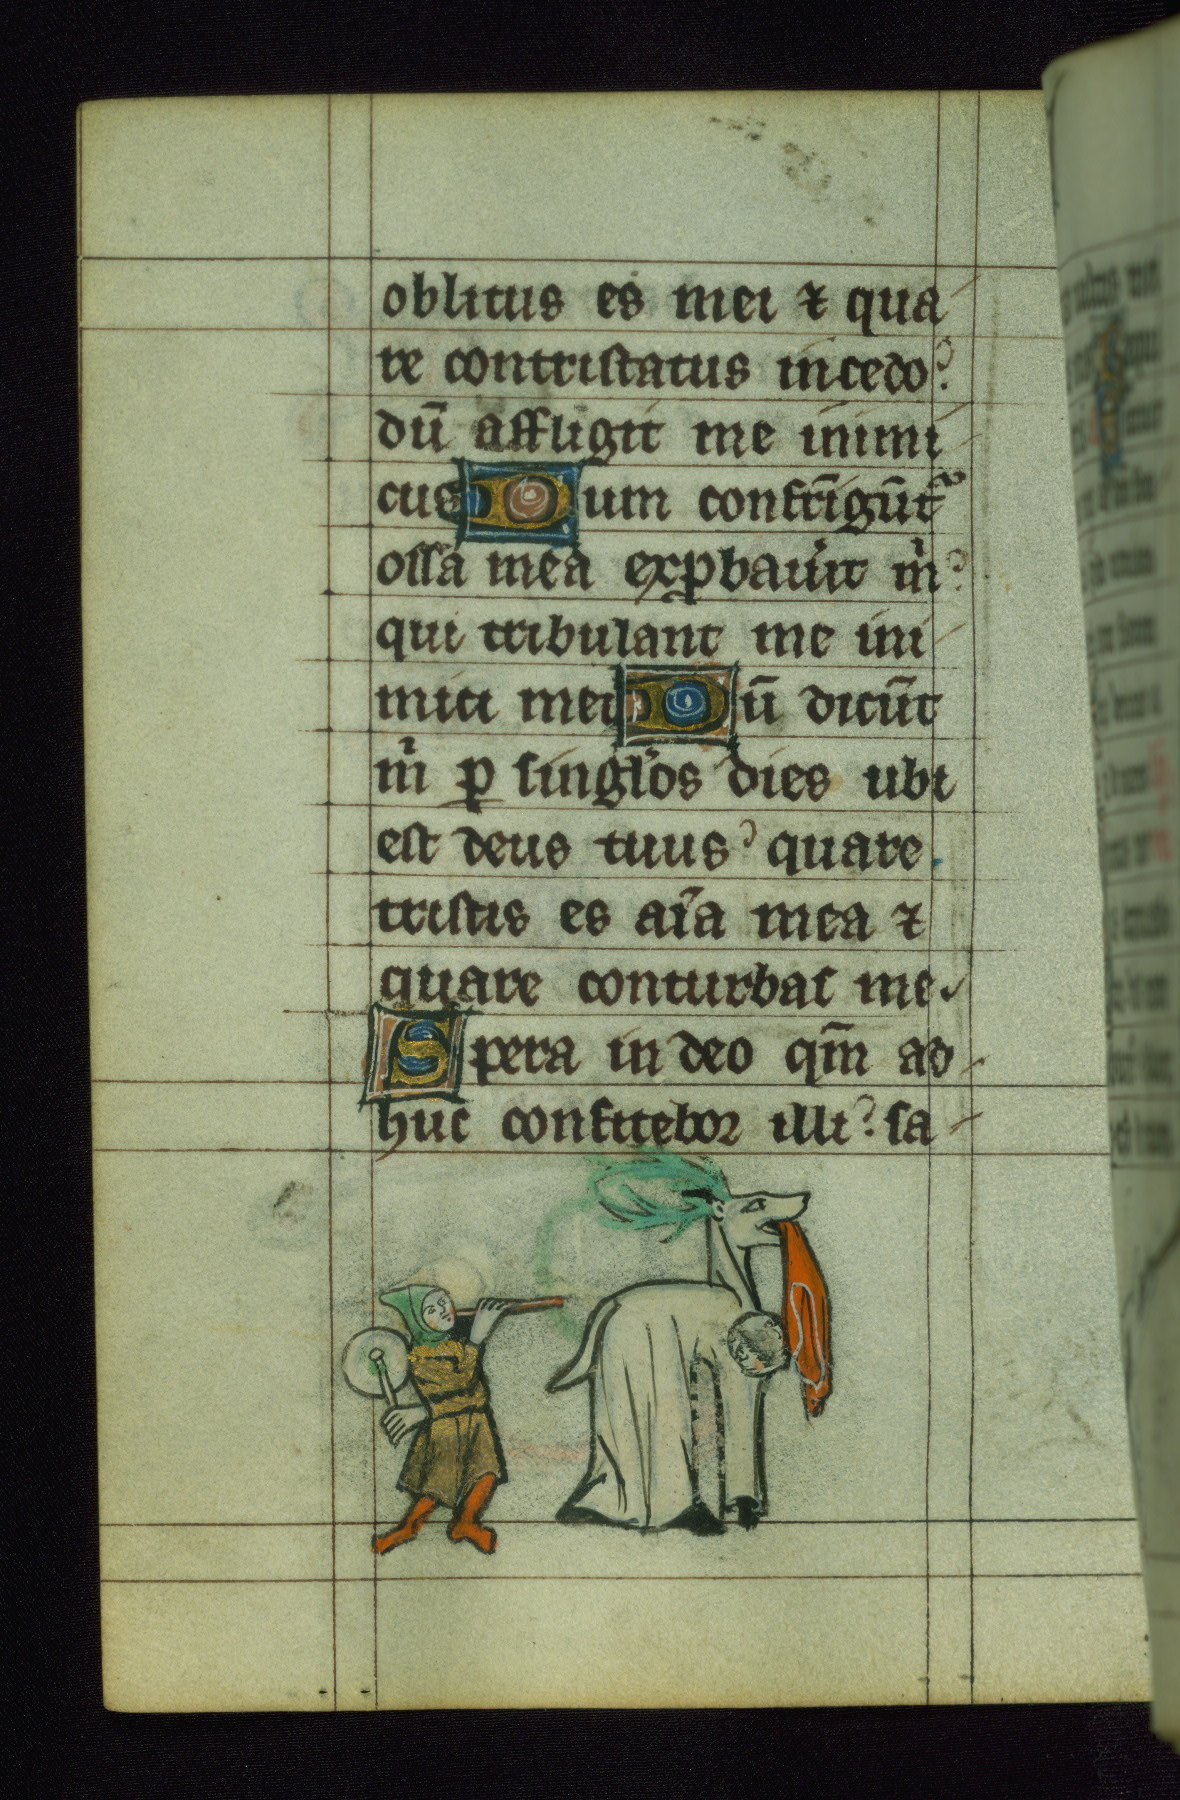 oblitus es mei ⁊ qua
re contristatus incedo?
dū affligit me inimi
cus Dum confrīgūt᷑
ossa mea exꝑbauͥt m̍
qui tribulant me ini
mici mei Dū dicūt
m̍ ꝑ singl̓os dies ubi
est deus tuus? quare
tristis es aīa mea ⁊
quare conturbas me
Spera in deo qm̄ ad
huc confitebor illi? sa